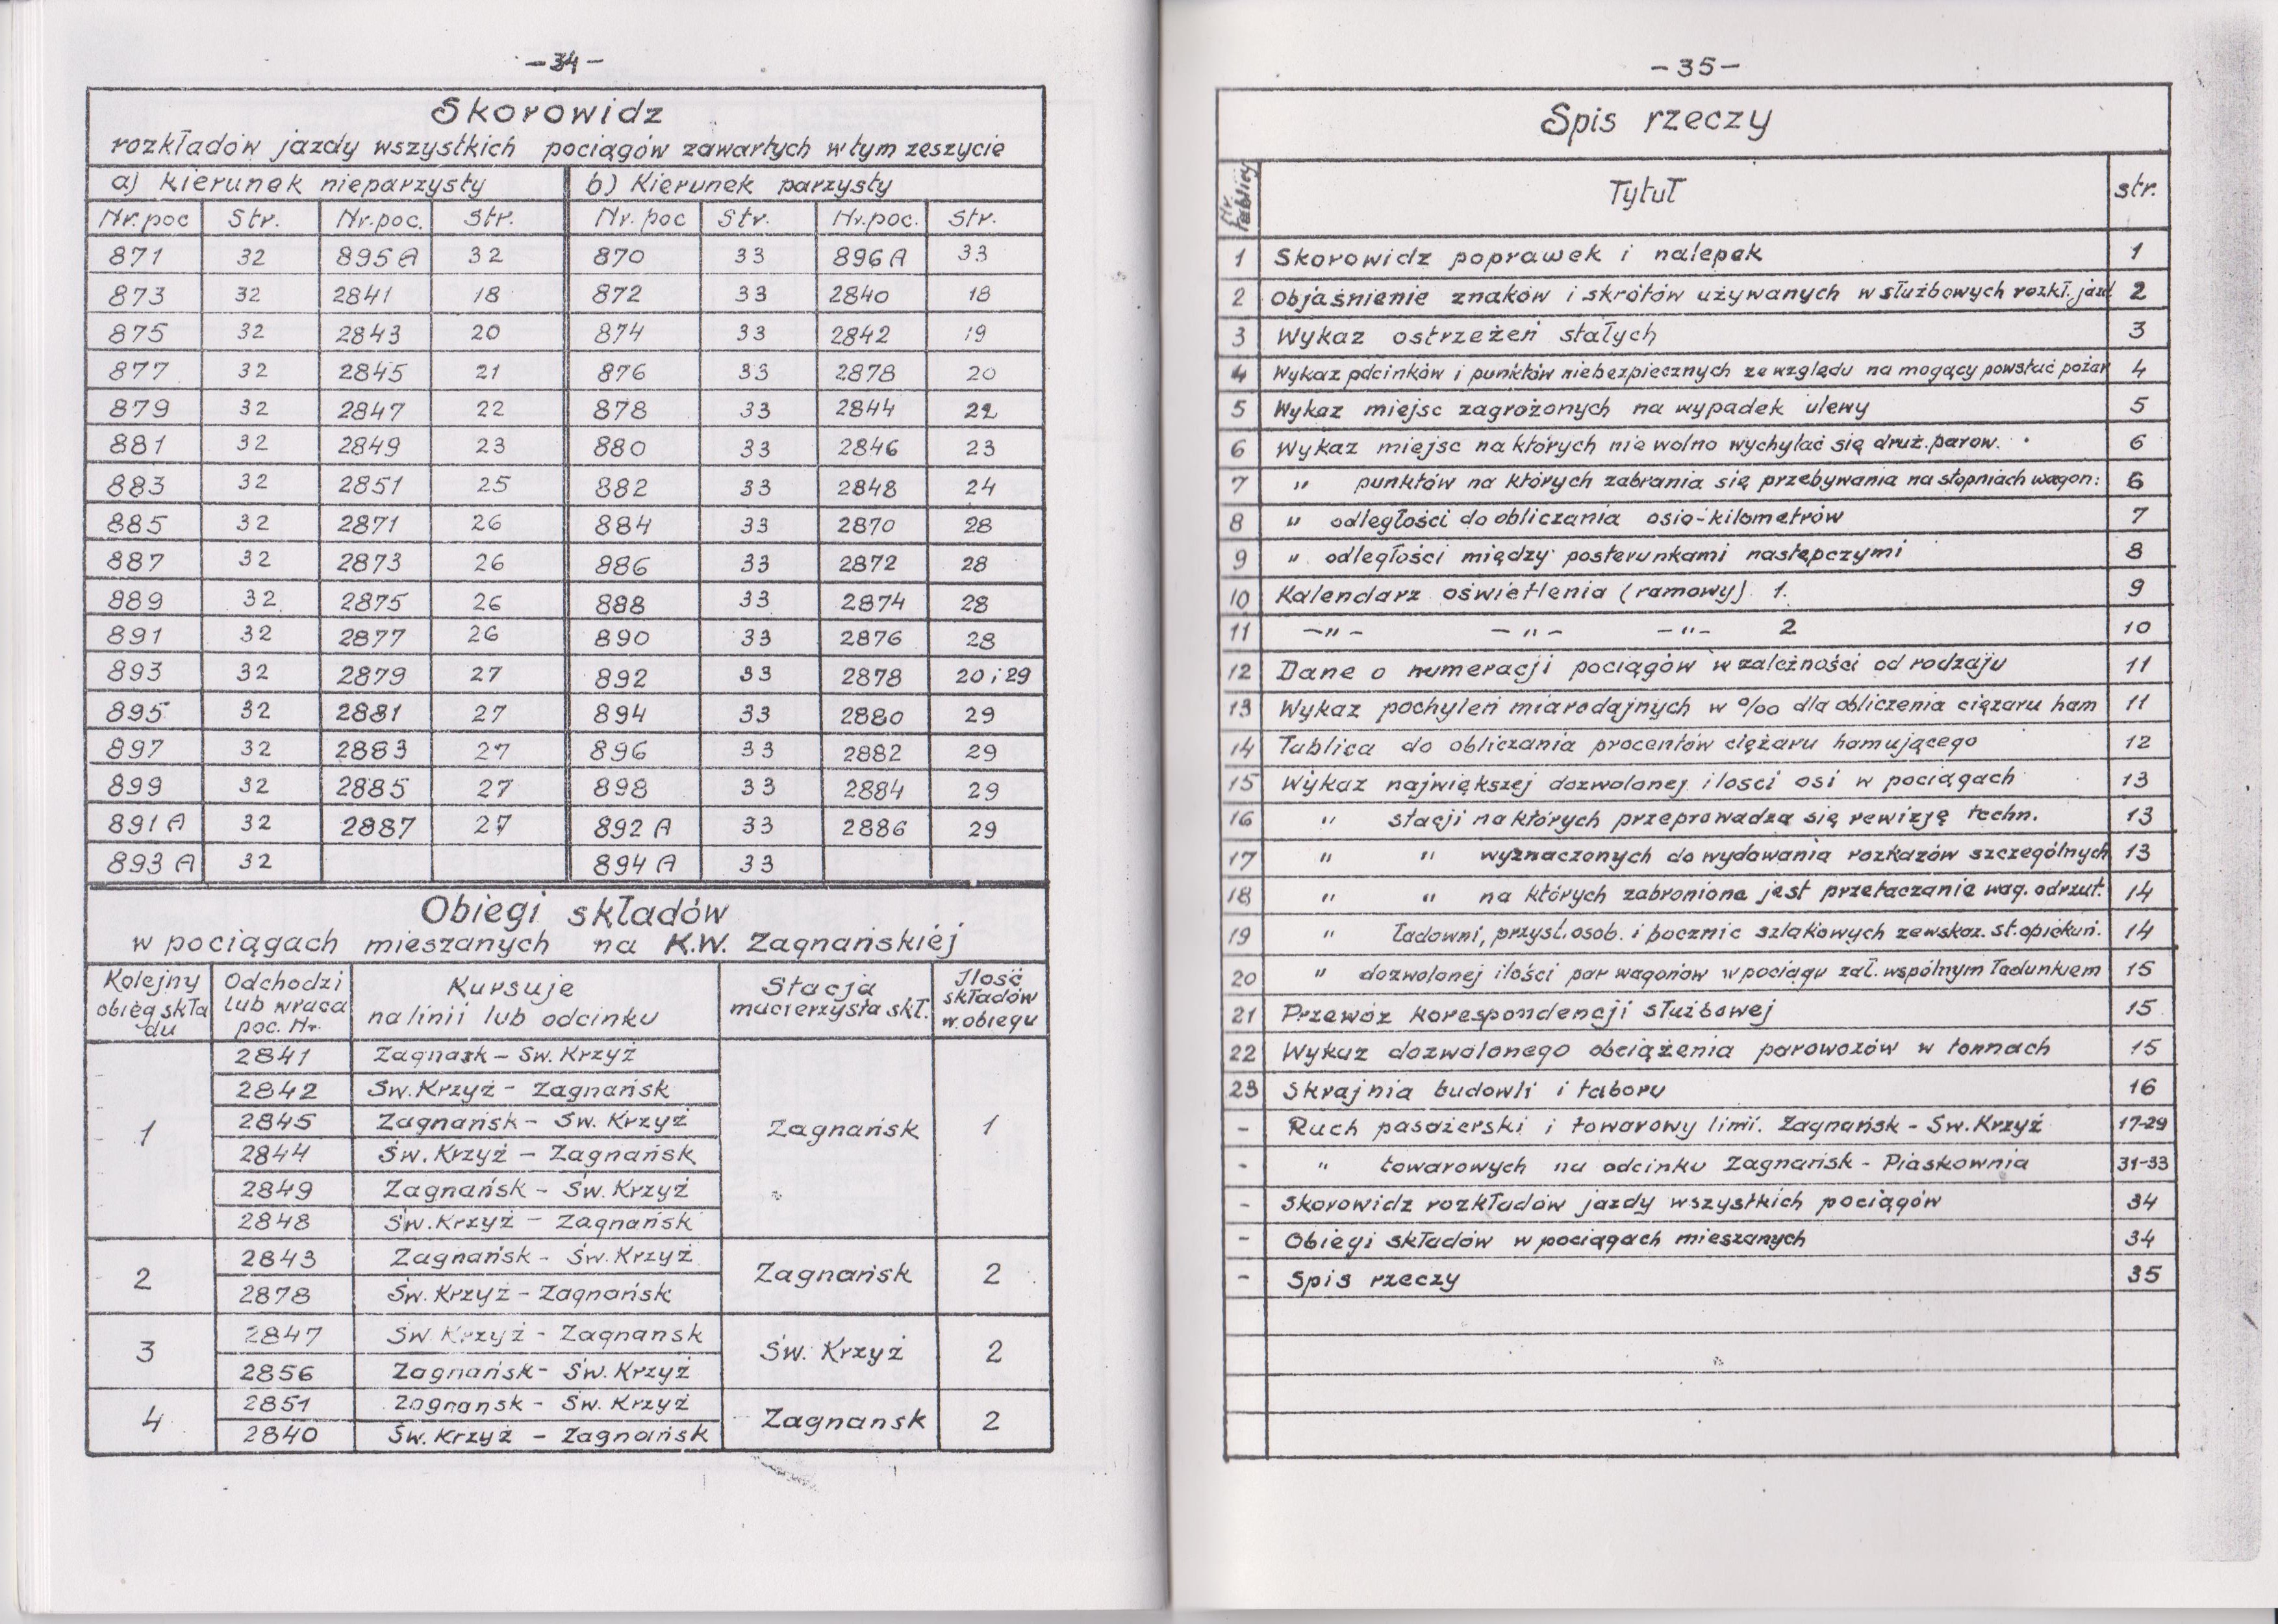 -34-
Skorowidz
rozkładów jazdy wszystkich pociągów zawartych w tym zeszycie
a) kierunek nieparzysty b) Kierunek parzysty
Nr. poc Str. Nr. poc. Str. Nr. poc Str. Nr. poc. Str.
871 32 895 A 32 870 33 896 A 33
873 32 2841 18 872 33 2840 18
875 32 2843 20 874 33 2842 19
877 32 2845 21 876 33 2878 20
879 32 2847 22 878 33 2844 22
881 32 2849 23 880 33 2846 23
883 32 2851 25 882 33 2848 24
885 32 2871 26 884 33 2870 28
887 32 2873 26 886 33 2872 28
889 32 2875 26 888 33 2874 28
891 32 2877 26 890 33 2876 28
893 32 2879 27 892 33 2878 20 i 29
895 32 2881 27 894 33 2880 29
897 32 2883 27 896 33 2882 29
899 32 2885 27 898 33 2884 29
891 A 32 2887 27 892 A 33 2886 29
893 A 32 894 A 33
Obiegi składów
w pociągach mieszanych na K.W. Zagnańskiéj
Kolejny obieg składu Odchodzi lub wraca poc. Nr. Kursuje na linii lub odcinku Stacja macierzysta skł. Ilość składów w obiegu
1 2841 Zagnask - Sw. Krzyż Zagnańsk 1
2842 Św. Krzyż - Zagnańsk
2845 Zagnańsk - Sw. Krzyż
2844 Św. Krzyż - Zagnańsk
2849 Zagnańsk - Św. Krzyż
2848 Św. Krzyż - Zagnańsk
2 2843 Zagnańsk - Św. Krzyż Zagnańsk 2
2878 Św. Krzyż - Zagnańsk
3 2847 Św. Krzyż - Zagnansk Św. Krzyż 2
2856 Zagnańsk - Św. Krzyż
4 2851 Zagnansk - Św. Krzyż Zagnansk 2
2840 Św. Krzyż - Zagnańsk
-35-
Spis rzeczy
Nr. tablicy Tytuł str.
1 Skorowidz poprawek i nalepek 1
2 Objaśnienie znaków i skrótów używanych w służbowych rozkł. jazd 2
3 Wykaz ostrzeżeń stałych 3
4 Wykaz odcinków i punktów niebezpiecznych ze względu na mogący powstać pożar 4
5 Wykaz miejsc zagrożonych na wypadek ulewy 5
6 Wykaz miejsc na których nie wolno wychylać się druż. parow. 6
7 " punktów na których zabrania się przebywania na stopniach wagon: 6
8 " odległości do obliczania osio-kilometrów 7
9 " odległości między posterunkami następczymi 8
10 Kalendarz oświetlenia (ramowy) 1. 9
11 -"- -"- -"- 2 10
12 Dane o numeracji pociągów w zależności od rodzaju 11
13 Wykaz pochyleń miarodajnych w ‰ dla obliczenia ciężaru ham 11
14 Tablica do obliczania procentów ciężaru hamującego 12
15 Wykaz największej dozwolonej ilosci osi w pociągach 13
16 " stacji na których przeprowadza się rewizję techn. 13
17 " " wyznaczonych do wydawania rozkazów szczególnych 13
18 " " na których zabronione jest przetaczanie wag. odrzut. 14
19 " ładowni, przyst. osob. i bocznic szlakowych ze wskaz. st. opiekuń. 14
20 " dozwolonej ilości par wagonów w pociągu zał. wspólnym ładunkiem 15
21 Przewóz korespondencji służbowej 15
22 Wykaz dozwolonego obciążenia parowozów w tonnach 15
23 Skrajnia budowli i taboru 16
- Ruch pasażerski i towarowy linii. Zagnańsk - Św. Krzyż 17-29
- " towarowych na odcinku Zagnańsk - Piaskownia 31-33
- Skorowidz rozkładów jazdy wszystkich pociągów 34
- Obiegi składów w pociągach mieszanych 34
- Spis rzeczy 35